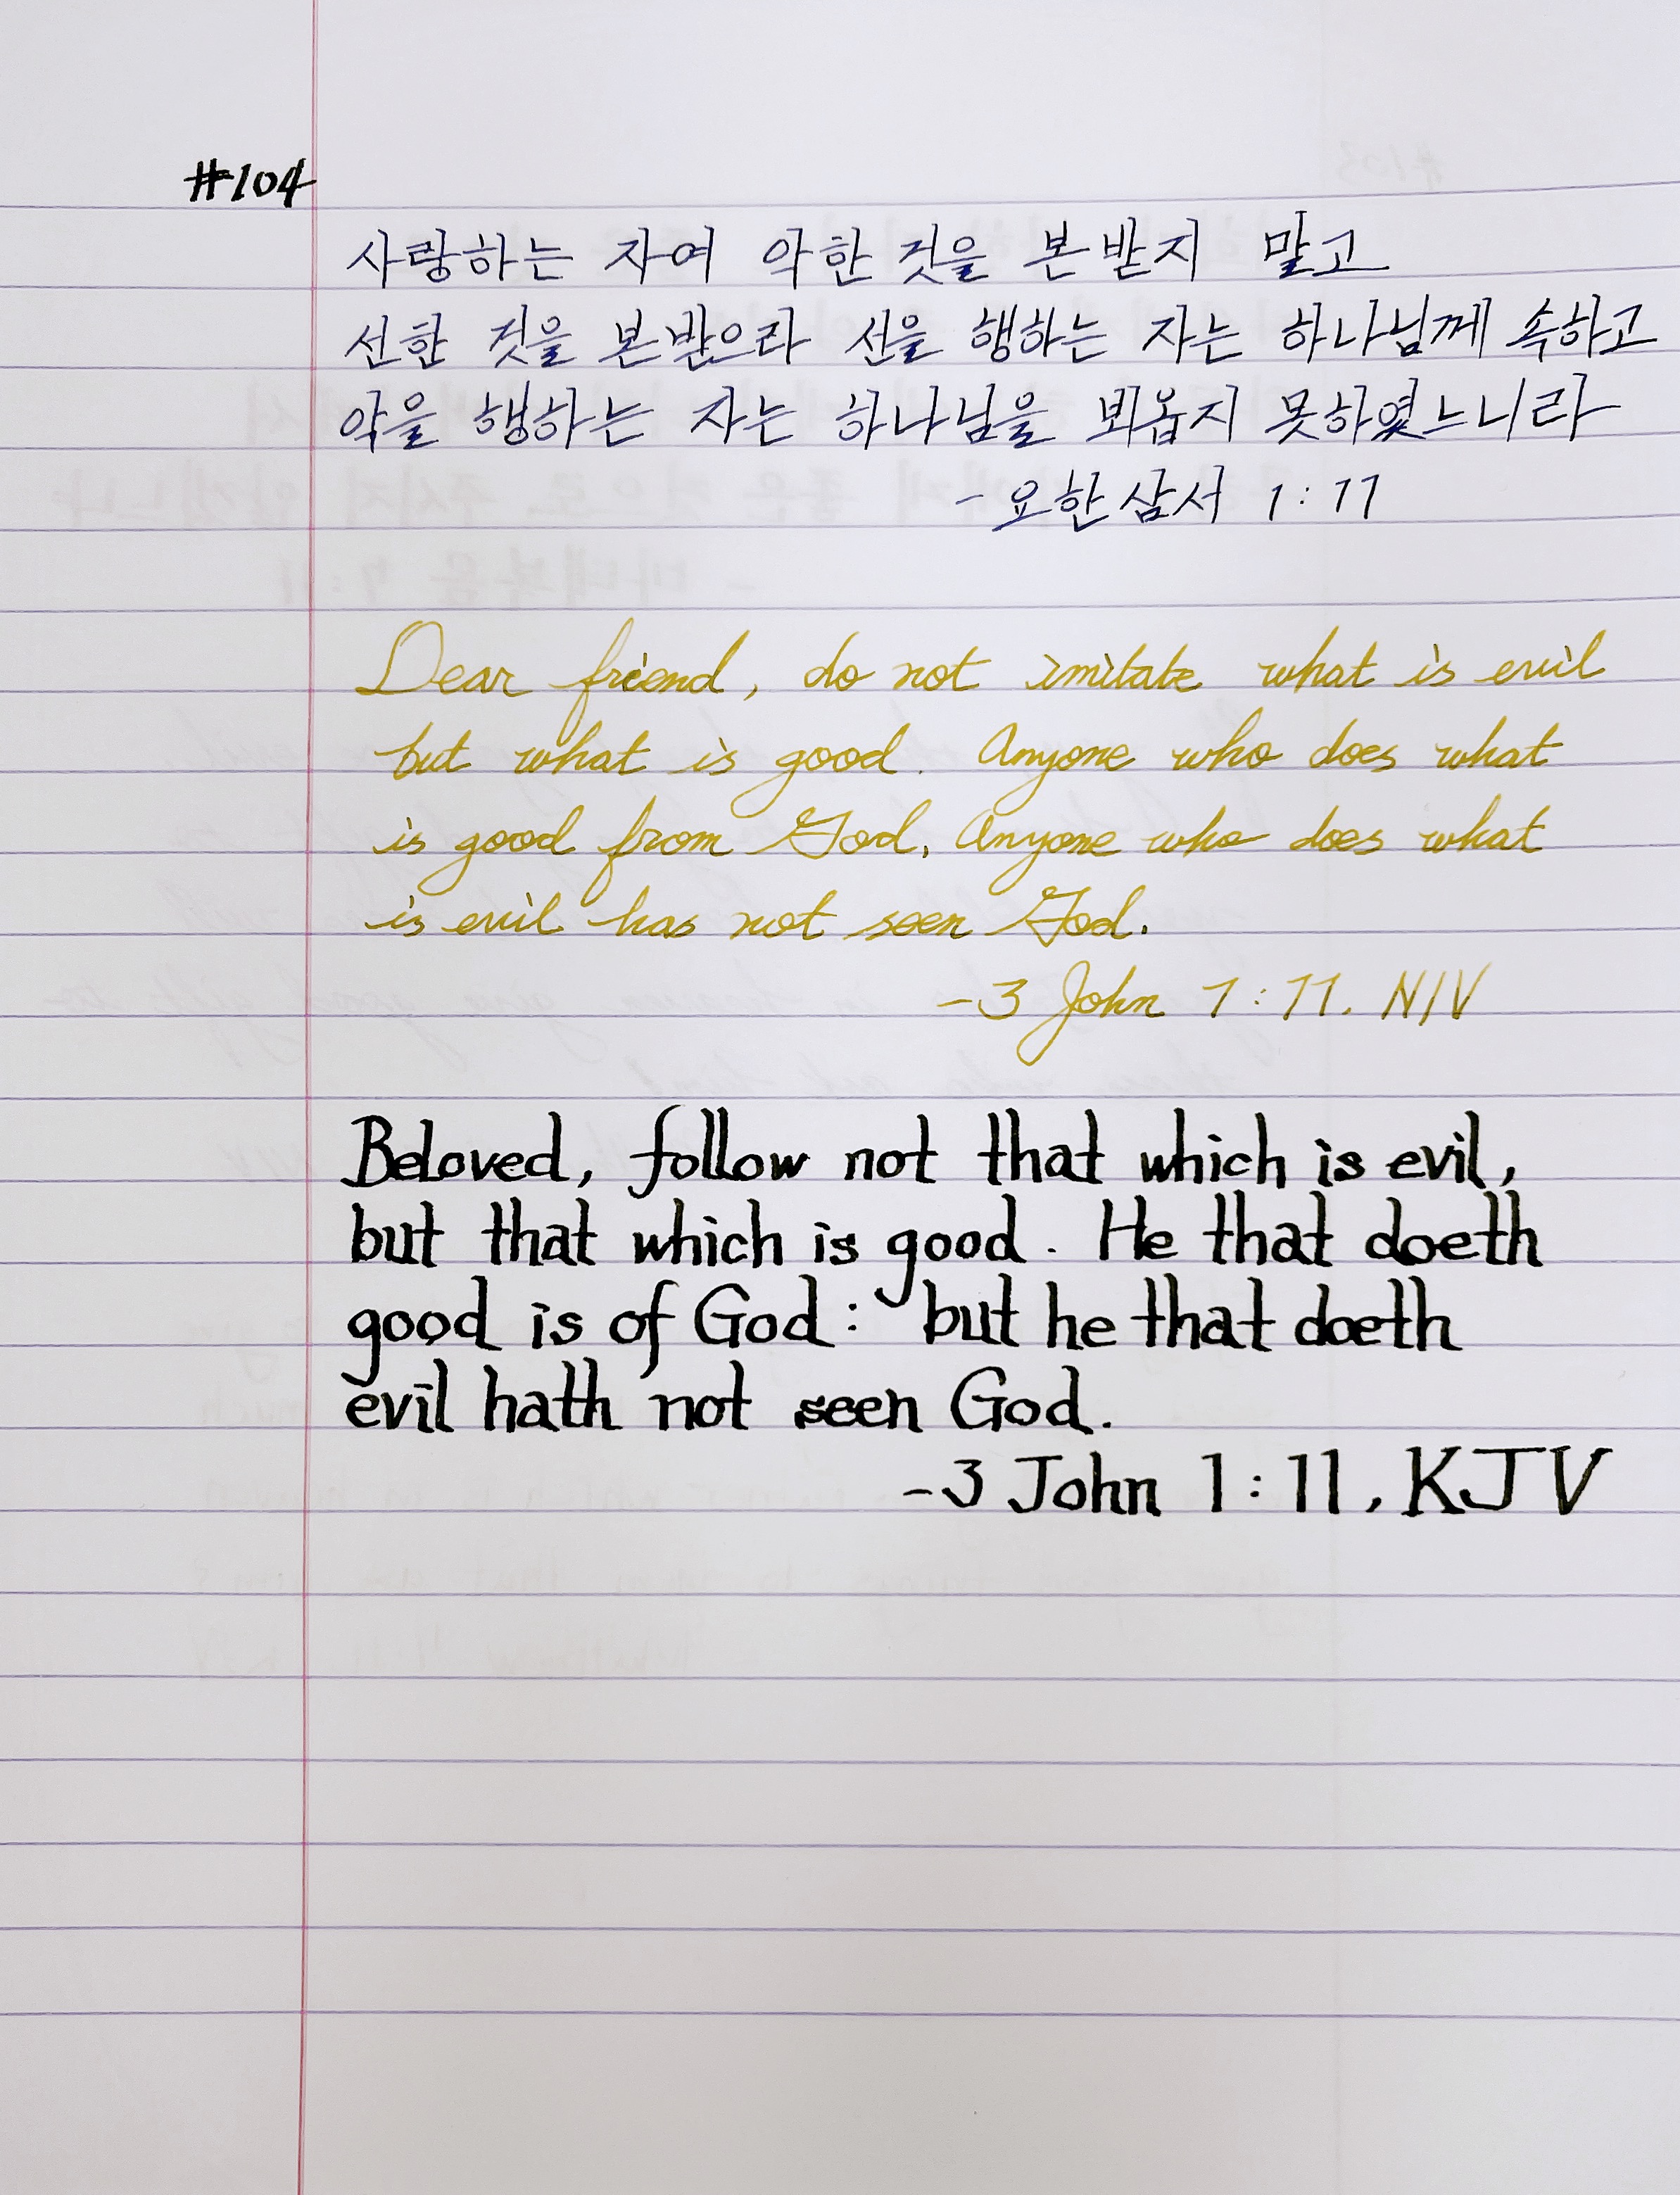 #104
사랑하는 자여 악한 것을 본받지 말고
선한 것을 본받으라 선을 행하는 자는 하나님께 속하고
악을 행하는 자는 하나님을 뵈옵지 못하였느니라
- 요한삼서 1:11
Dear friend, do not imitate what is evil
but what is good. Anyone who does what
is good from God. Anyone who does what
is evil has not seen God.
-3 John 1:11. NIV
Beloved, follow not that which is evil,
but that which is good. He that doeth
good is of God: but he that doeth
evil hath not seen God.
-3 John 1:11, KJV